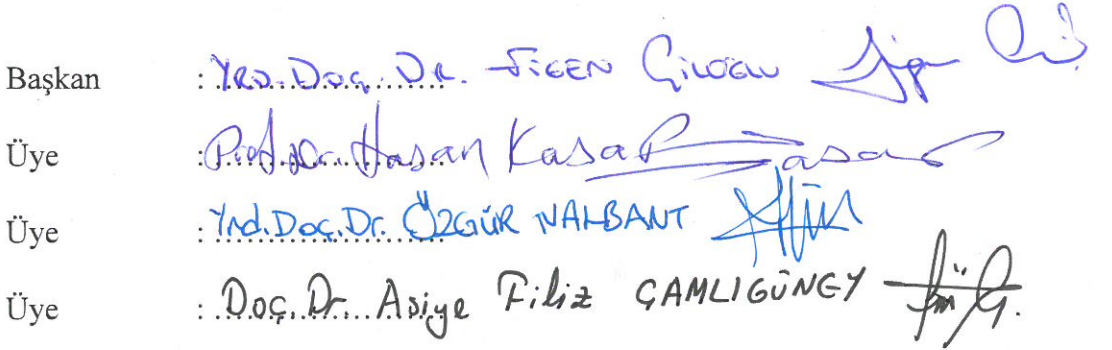 Başkan : Yrd. Doç. Dr. FİGEN ÇİLOĞLU
Üye : Prof. Dr. Hasan Kasap
Üye : Yrd. Doç. Dr. ÖZGÜR NALBANT
Üye : Doç. Dr. Asiye Filiz ÇAMLIGÜNEY